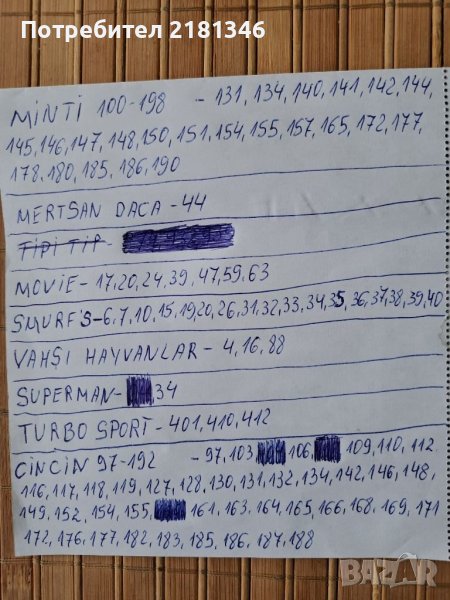 Потребител 2181346
MINTI 100-198 - 131, 134, 140, 141, 142, 144,
145, 146, 147, 148, 150, 151, 154, 155, 157, 165, 172, 177,
178, 180, 185, 186, 190
MERTSAN DACA - 44
TIPI TIP -
MOVIE - 17, 20, 24, 39, 47, 59, 63
SMURF'S - 6, 7, 10, 15, 19, 20, 26, 31, 32, 33, 34, 35, 36, 37, 38, 39, 40
VAHŞI HAYVANLAR - 4, 16, 88
SUPERMAN - 34
TURBO SPORT - 401, 410, 412
CINCIN 97-192 - 97, 103 106, 109, 110, 112
116, 117, 118, 119, 127, 128, 130, 131, 132, 134, 142, 146, 148,
149, 152, 154, 155, 161, 163, 164, 165, 166, 168, 169, 171
172, 176, 177, 182, 183, 185, 186, 187, 188
BAZAR